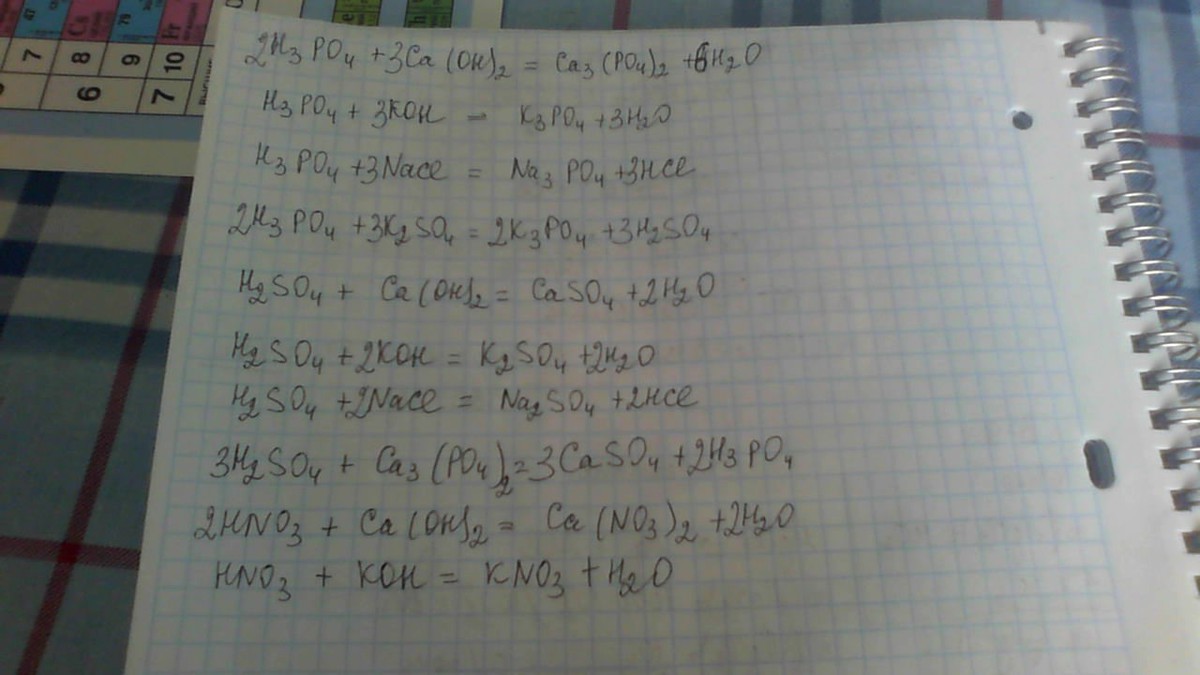 2H₃PO₄ + 3Ca(OH)₂ = Ca₃(PO₄)₂ + 6H₂O
H₃PO₄ + 3KOH = K₃PO₄ + 3H₂O
H₃PO₄ + 3NaCl = Na₃PO₄ + 3HCl
2H₃PO₄ + 3K₂SO₄ = 2K₃PO₄ + 3H₂SO₄
H₂SO₄ + Ca(OH)₂ = CaSO₄ + 2H₂O
H₂SO₄ + 2KOH = K₂SO₄ + 2H₂O
H₂SO₄ + 2NaCl = Na₂SO₄ + 2HCl
3H₂SO₄ + Ca₃(PO₄)₂ = 3CaSO₄ + 2H₃PO₄
2HNO₃ + Ca(OH)₂ = Ca(NO₃)₂ + 2H₂O
HNO₃ + KOH = KNO₃ + H₂O
7
8
9
10
6
7
Cs
Fr
47
79